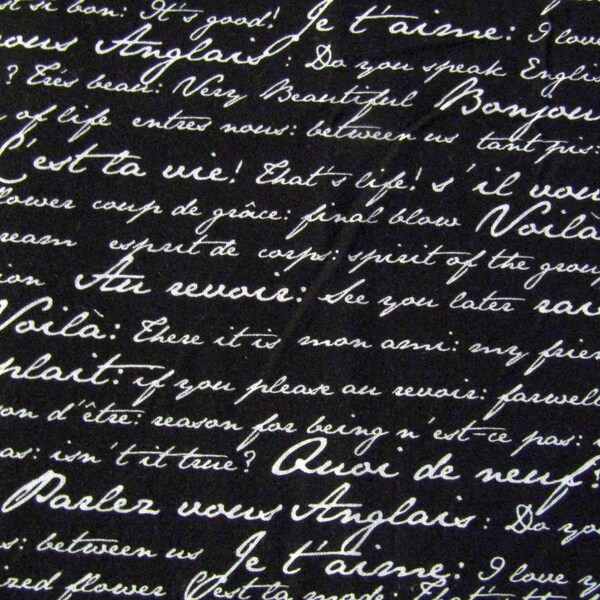 st si bon: It's good! Je t'aime: I love
vous Anglais: Do you speak Englis
? Trés beau: Very Beautiful Bonjou
of life entres nous: between us tant pis:
C'est la vie! That's life! s'il vou
flower coup de grâce: final blow Voilà
ream esprit de corps: spirit of the group
ion Au revoir: See you later rais
Voilà: There it is mon ami: my frien
plait: if you please au revoir: farwell
on d'être: reason for being n'est-ce pas:
as: isn't it true? Quoi de neuf?
Parlez vous Anglais: Do yo
s: between us Je t'aime: I love y
ized flower C'est la mode: